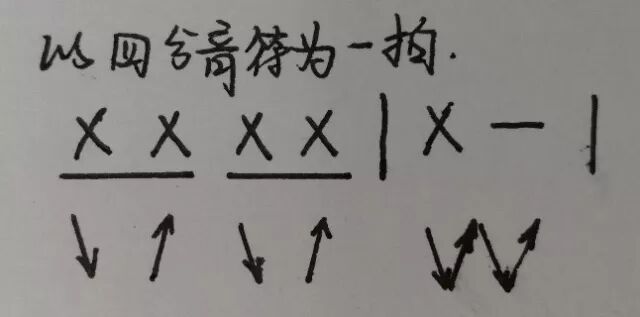 以四分音符为一拍.
X X X X | X — |